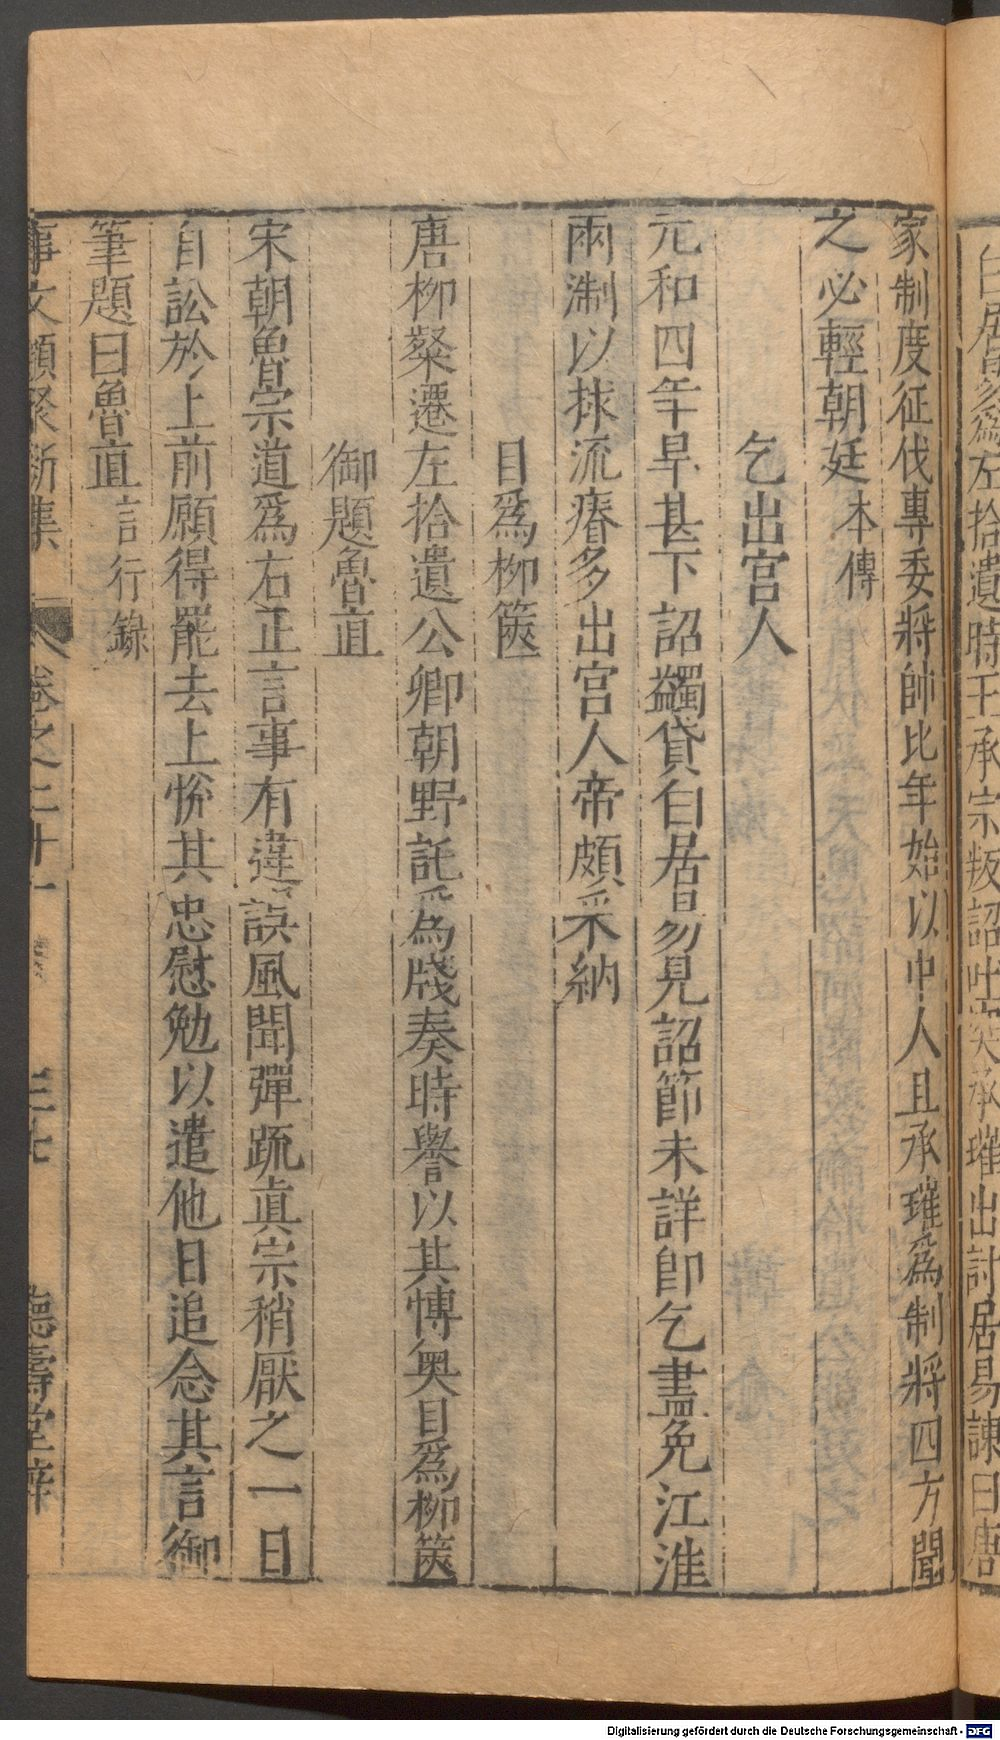 白居易為左拾遺時王承宗叛詔吐突承璀出討居易諫曰唐
家制度征伐專委將帥比年始以中人且承璀爲制將四方聞
之必輕朝廷本傳
乞出宫人
元和四年旱甚下詔蠲貸白居易見詔節未詳卽乞盡免江淮
兩淛以捄流瘠多出宫人帝頗采納
目爲柳篋
唐柳粲遷左拾遺公卿朝野託爲牋奏時譽以其愽奥目爲柳篋
御題魯直
宋朝魯宗道爲右正言事有違誤風聞彈疏真宗稍厭之一日
自訟於上前願得罷去上恱其忠慰勉以遣他日追念其言御
筆題曰魯直言行錄
事文類聚新集 卷之二十一 三七 德壽堂梓
Digitalisierung gefördert durch die Deutsche Forschungsgemeinschaft - DFG